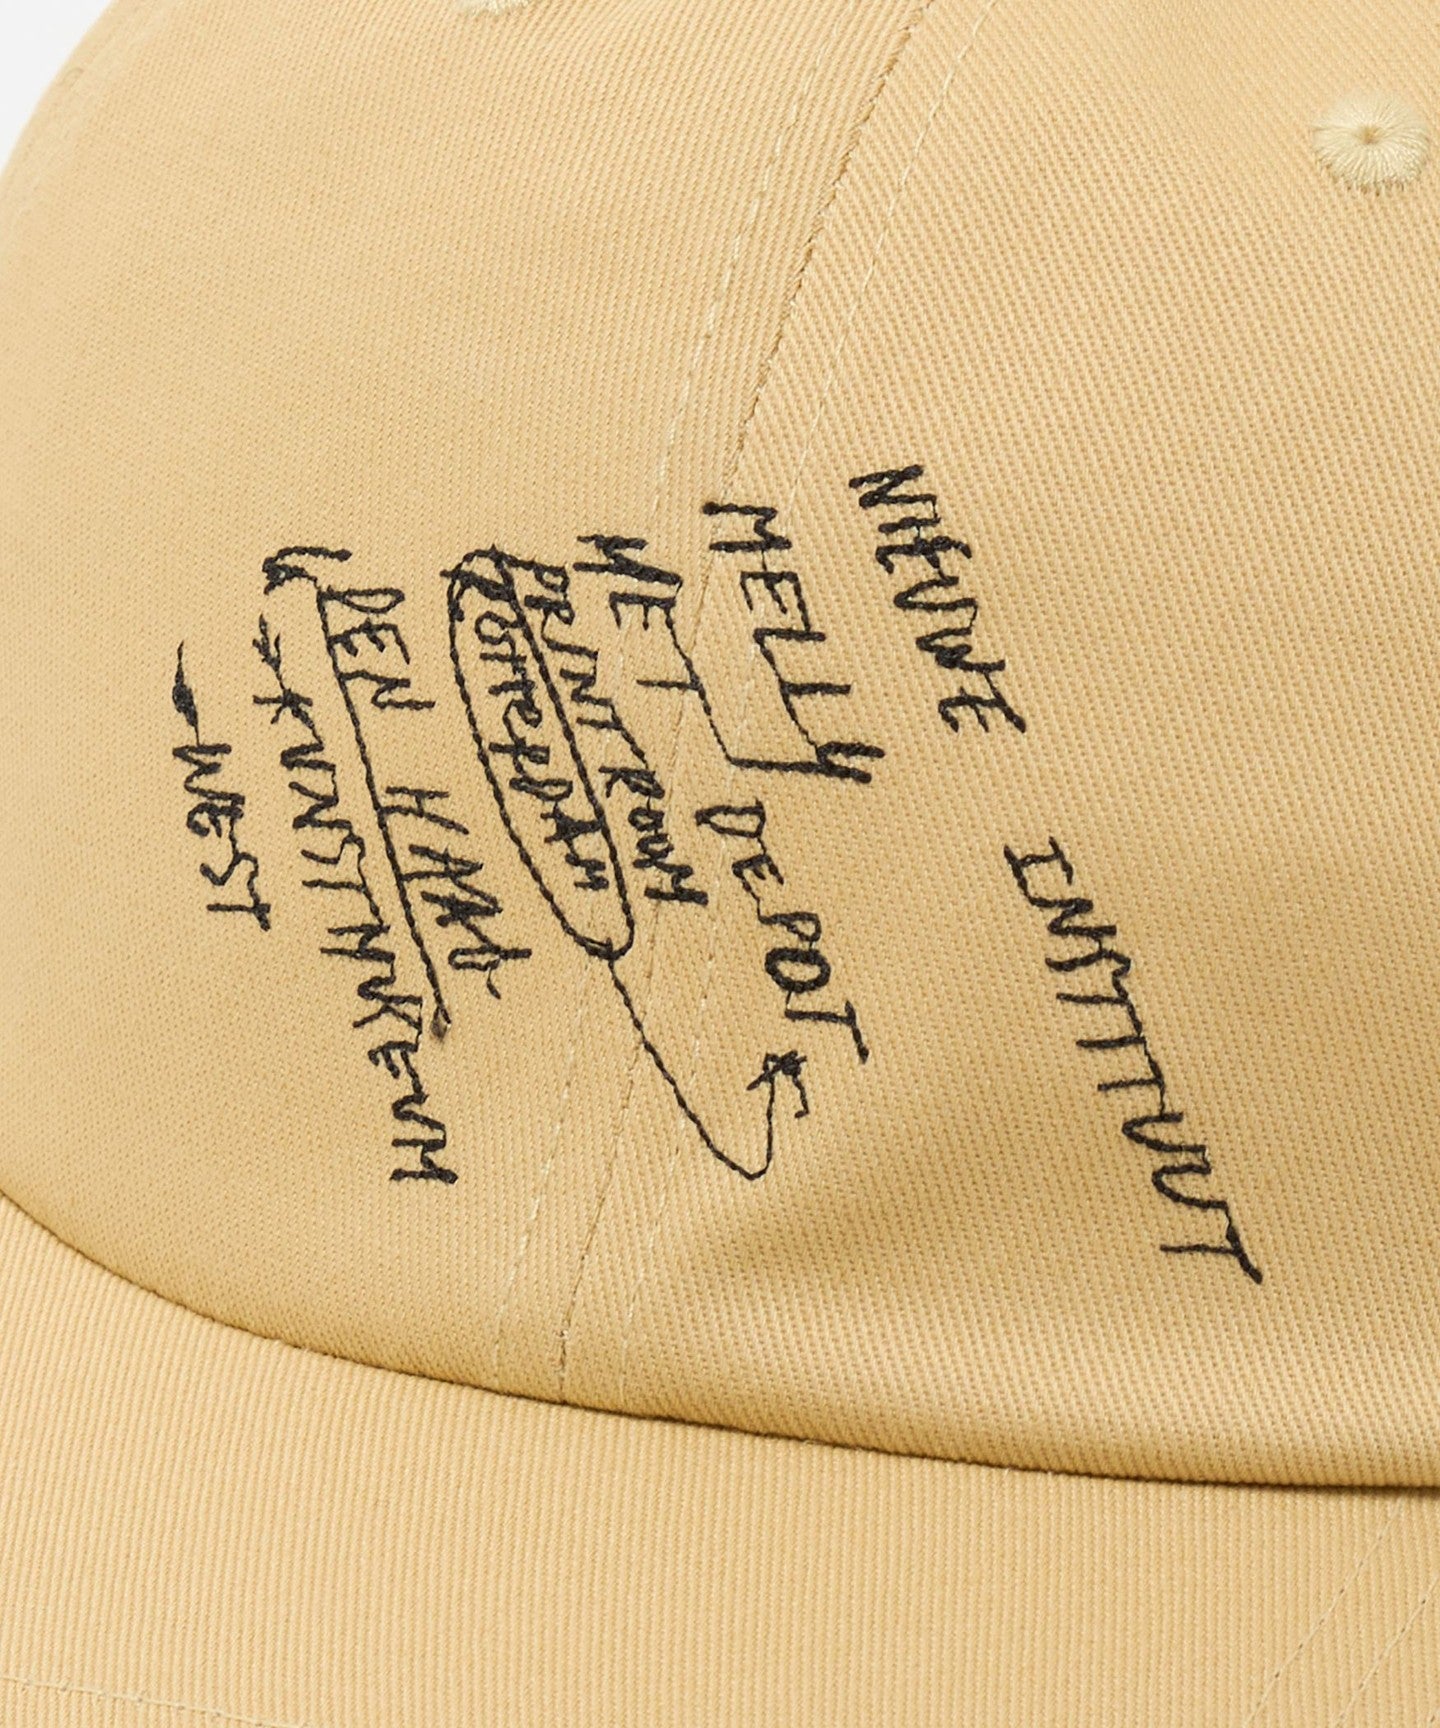 NIEUWE INSTITUUT
MELLY
HET DEPOT
PRINTROOM
ROTTERDAM
DEN HAAG
WEST